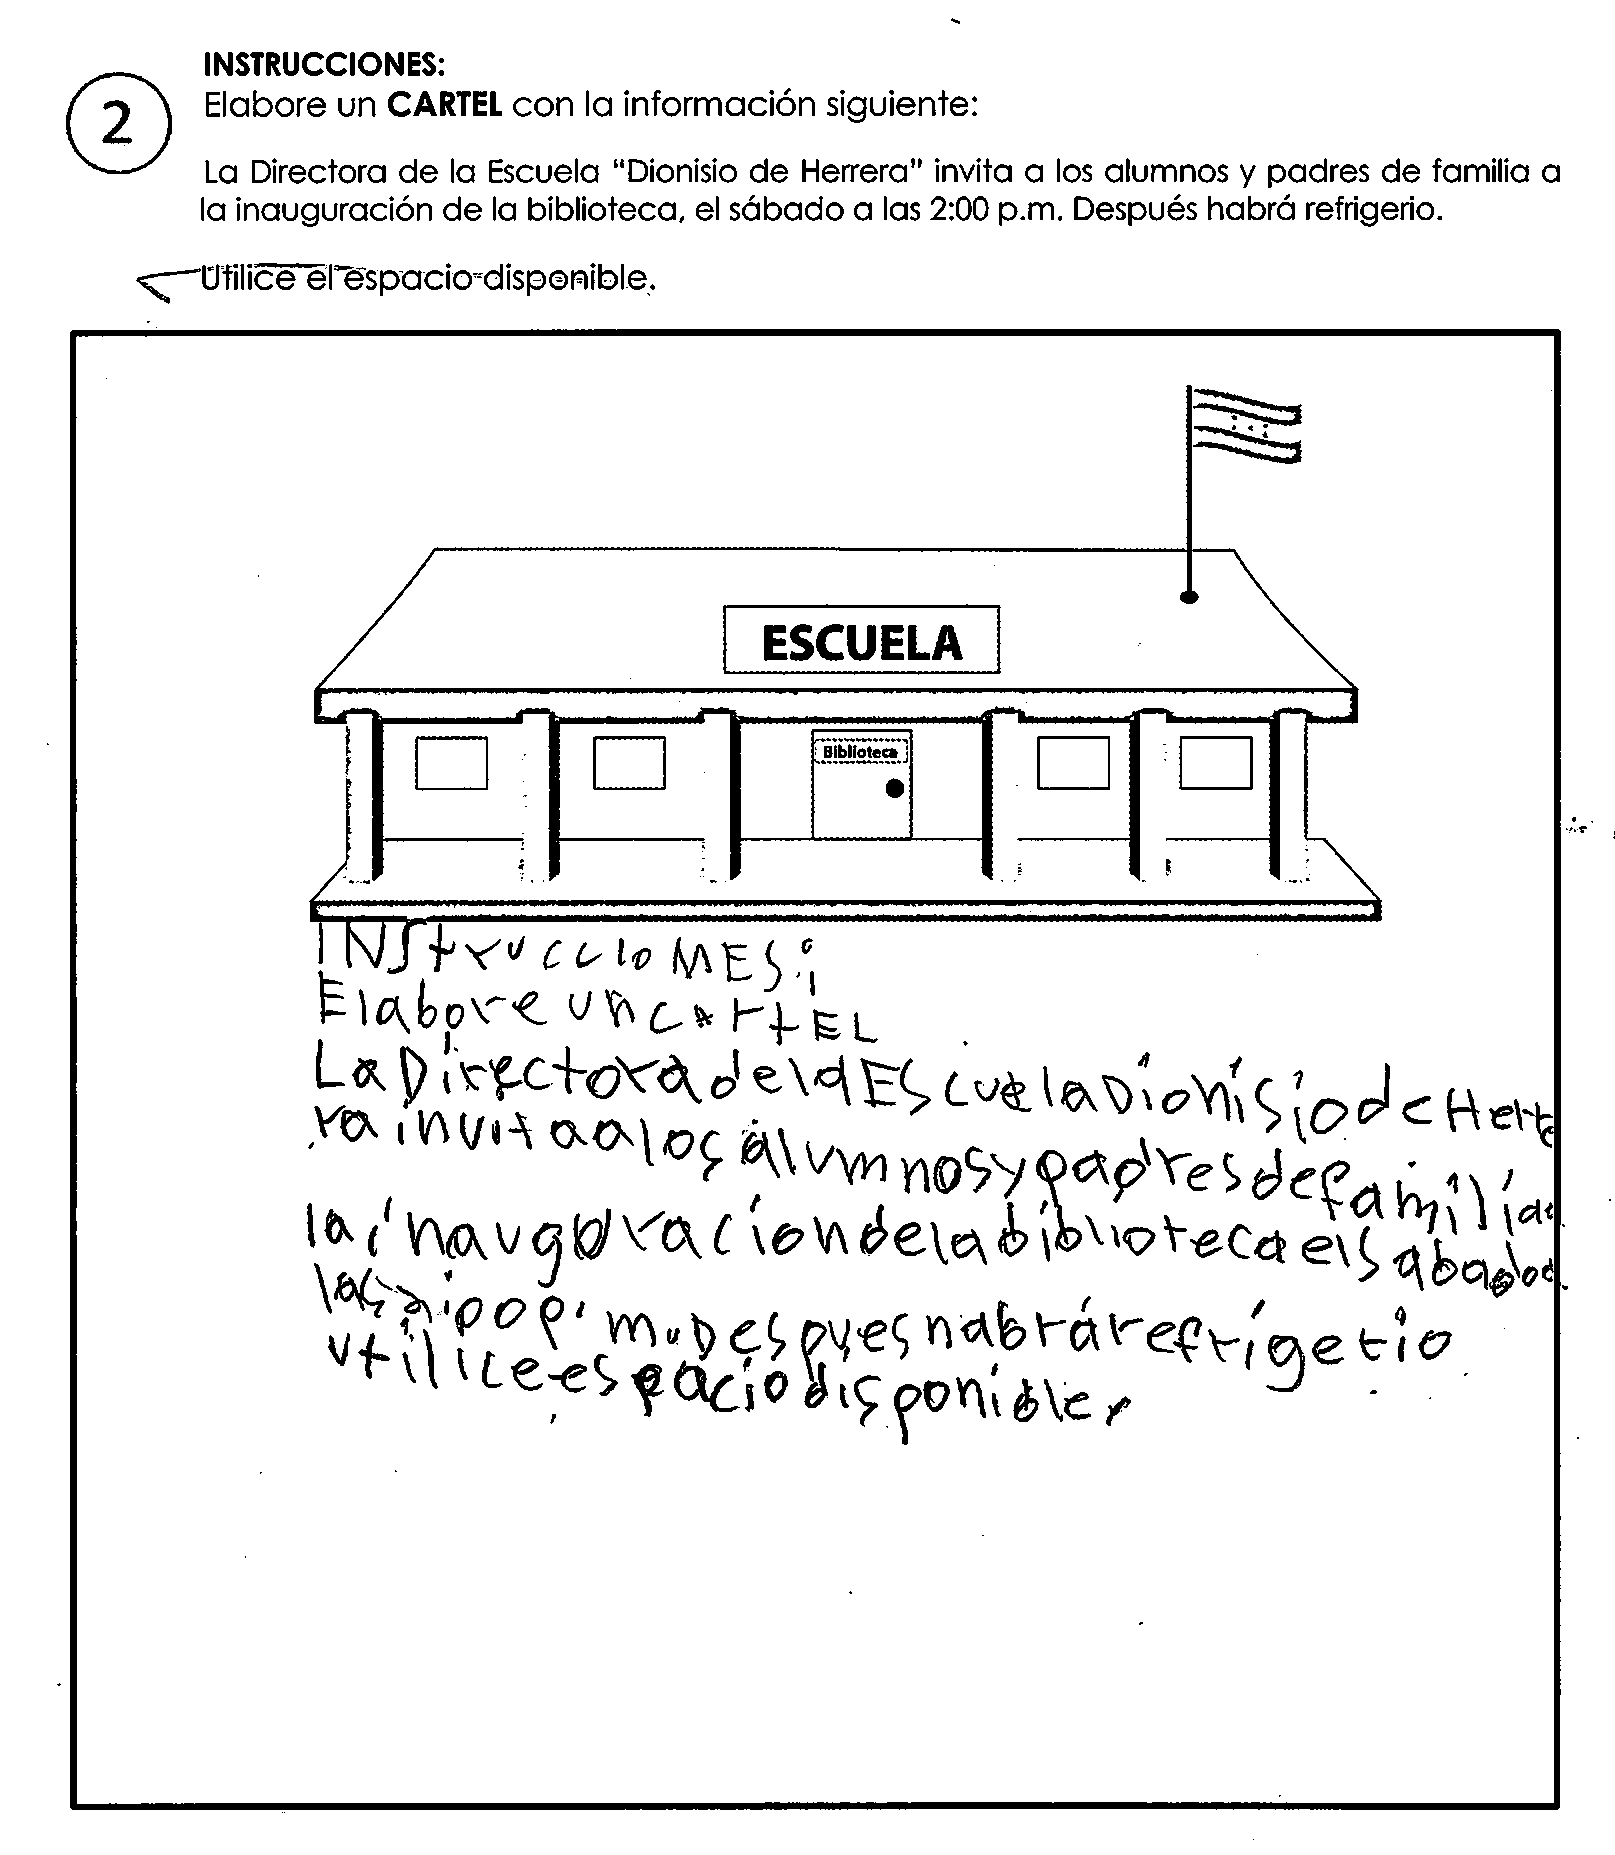 INSTRUCCIONES:
2
Elabore un CARTEL con la información siguiente:
La Directora de la Escuela "Dionisio de Herrera" invita a los alumnos y padres de familia a
la inauguración de la biblioteca, el sábado a las 2:00 p.m. Después habrá refrigerio.
Utilice el espacio disponible.
ESCUELA
Biblioteca
INStrucciomES:
Elabore un cartEL
La Directora de la EScuela Dionisio de Herre
ra invita a a los alumnos y padres de familia
la inauguracion de la biblioteca el sabado a
las 2:00 p.m. Despues nabrá refrigerio
utilice espacio disponible.